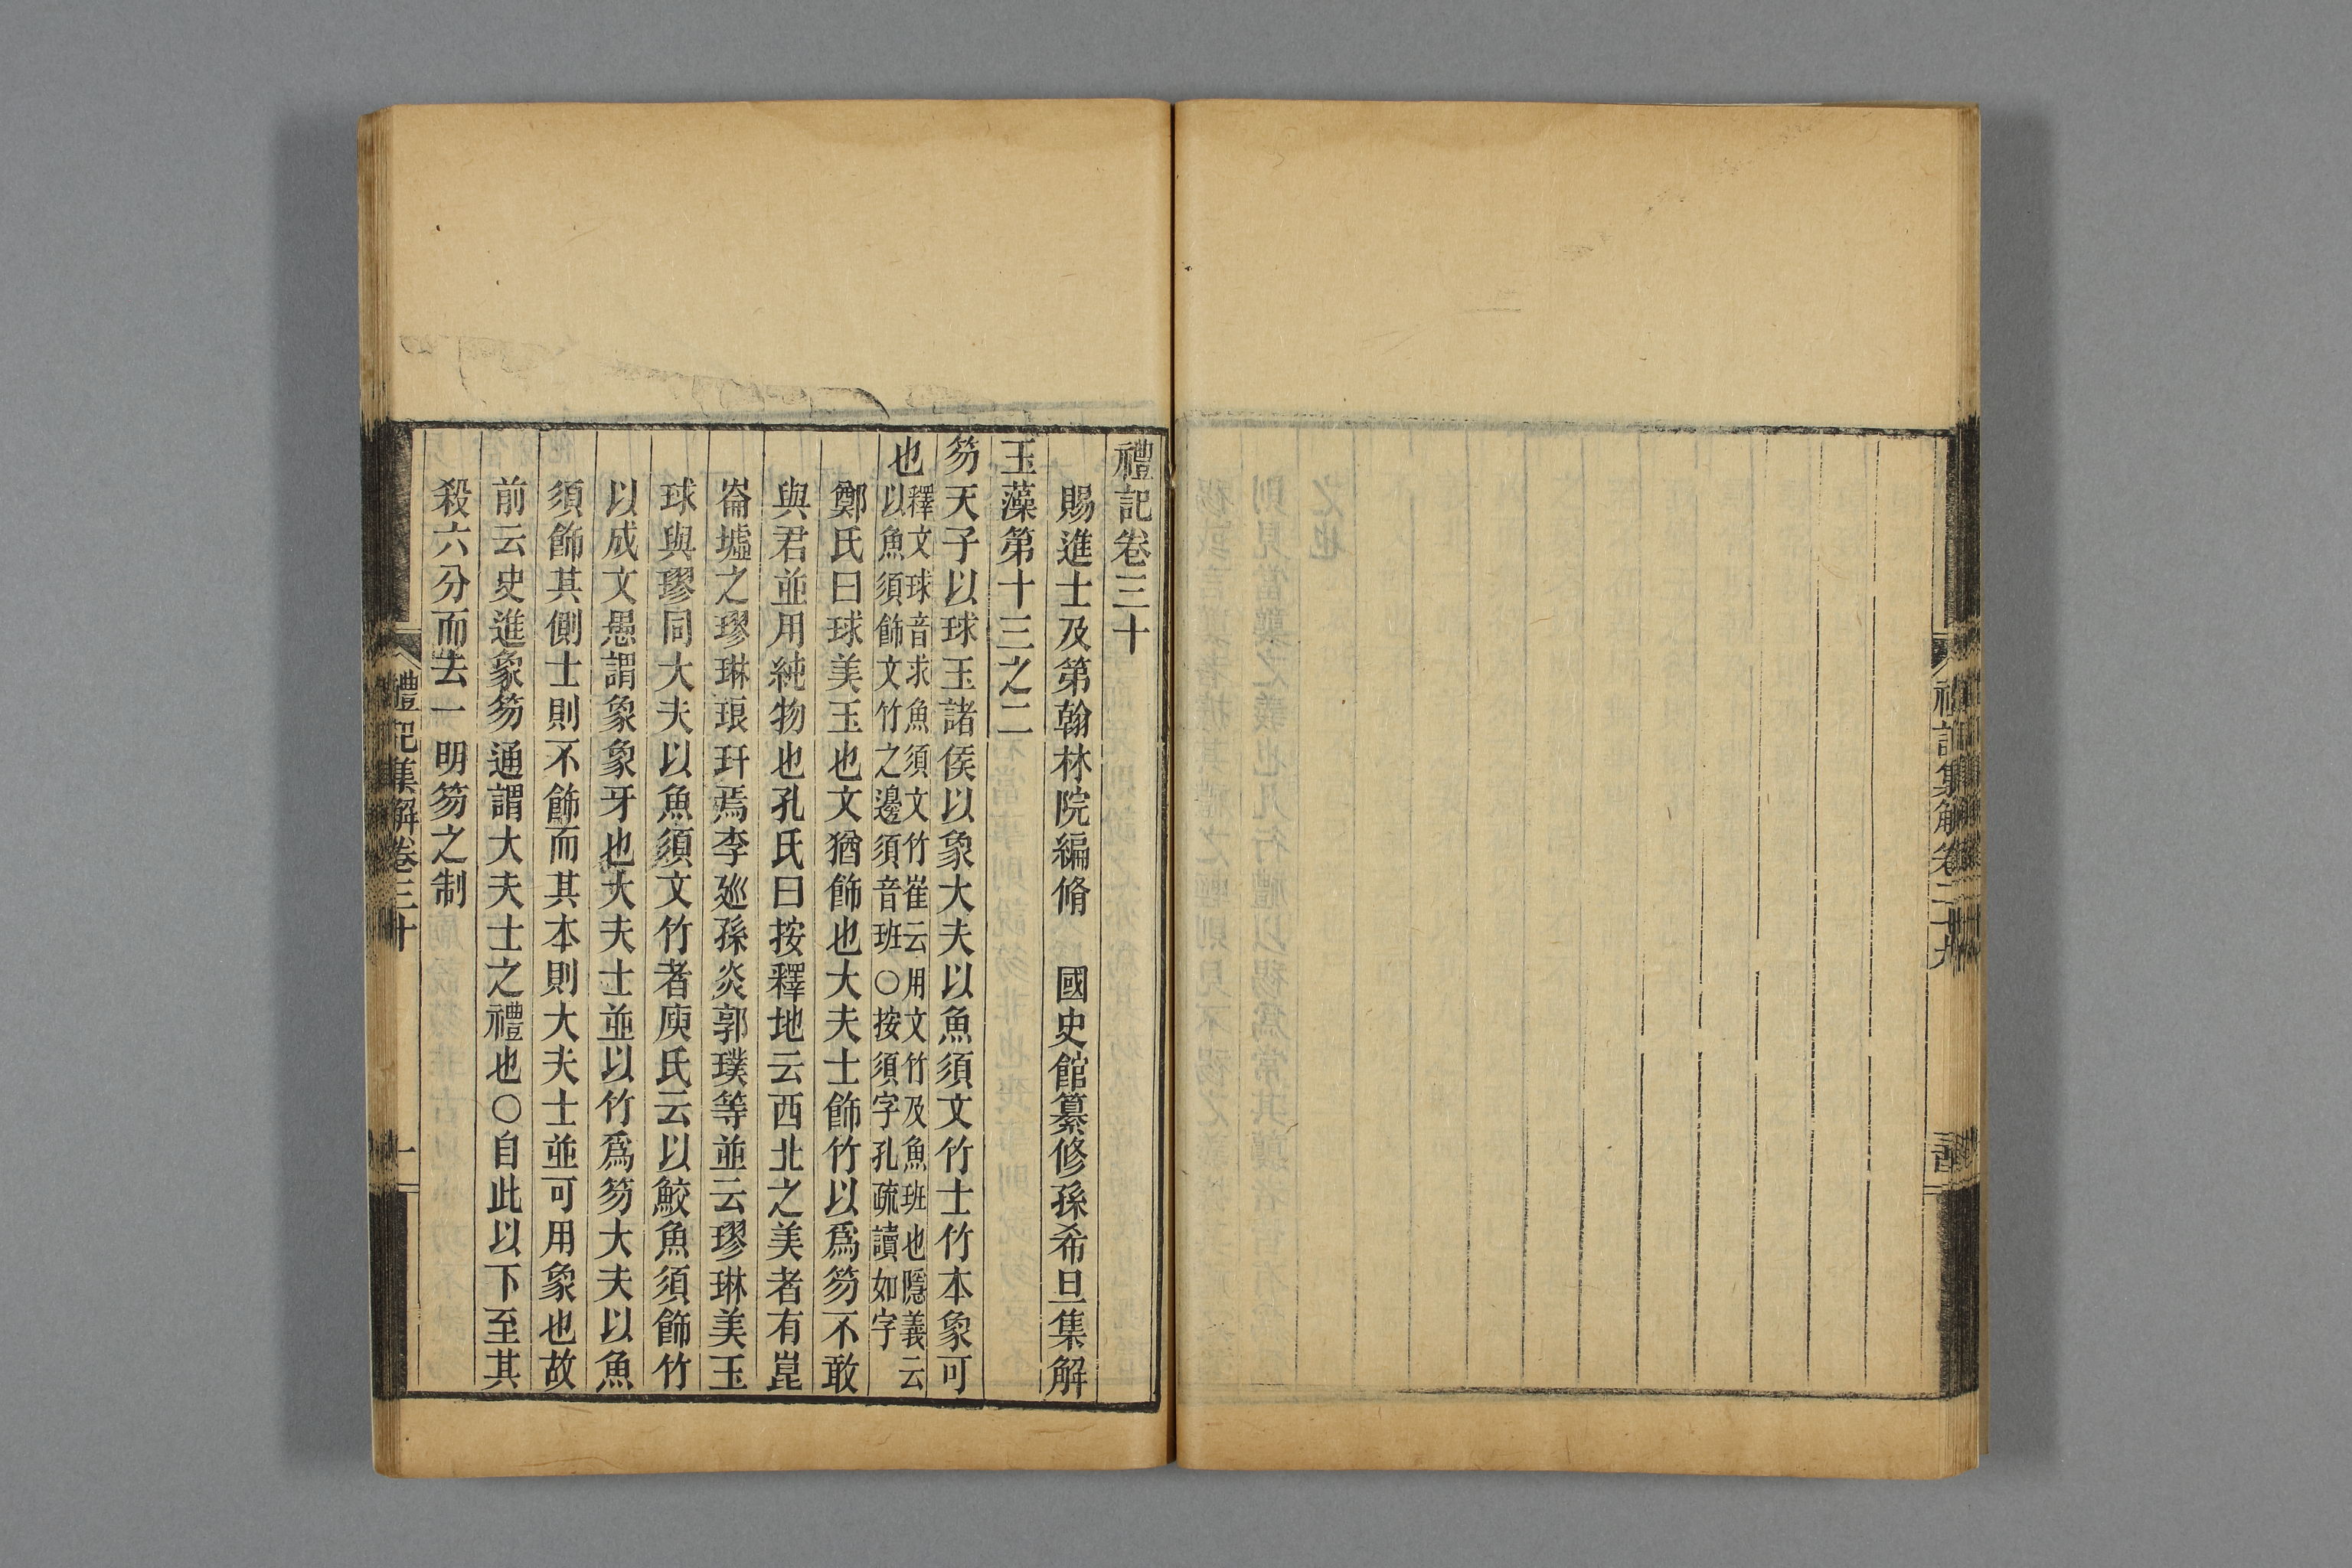 禮記卷三十
賜進士及第翰林院編脩　國史館纂修孫希旦集解
玉藻第十三之二
笏天子以球玉諸侯以象大夫以魚須文竹士竹本象可
也
釋文球音求魚須文竹崔云用文竹及魚班也隱義云
以魚須飾文竹之邊須音班○按須字孔疏讀如字
鄭氏曰球美玉也文猶飾也大夫士飾竹以爲笏不敢
與君並用純物也孔氏曰按釋地云西北之美者有崑
崙墟之璆琳琅玕焉李廵孫炎郭璞等並云璆琳美玉
球與璆同大夫以魚須文竹者庾氏云以鮫魚須飾竹
以成文愚謂象象牙也大夫士並以竹爲笏大夫以魚
須飾其側士則不飾而其本則大夫士並可用象也故
前云史進象笏通謂大夫士之禮也○自此以下至其
殺六分而去一明笏之制
禮記集解卷三十
一